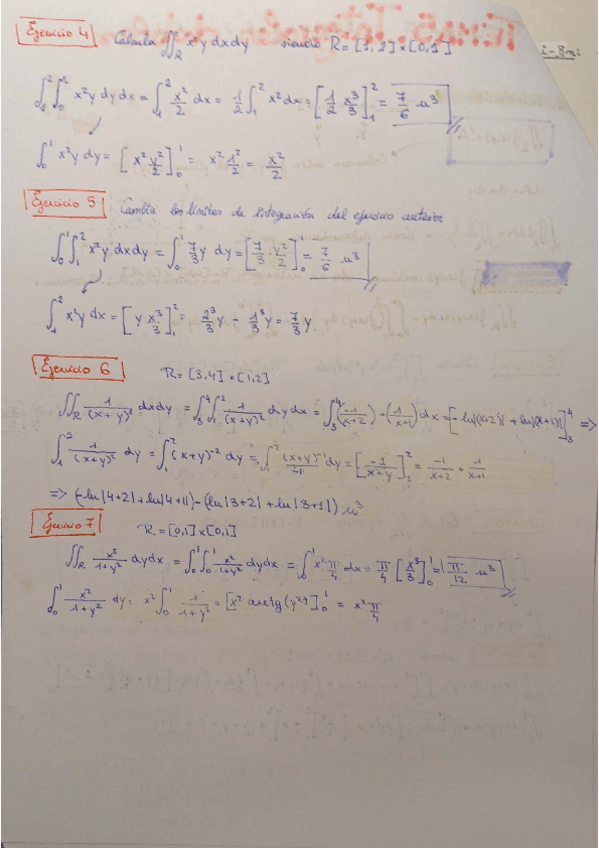 Ejercicio 4 Calcula ∬_R x²y dxdy siendo R = [1,2]×[0,1]
∫₁²∫₀¹ x²y dy dx = ∫₁² x²/2 dx = 1/2 ∫₁² x² dx = [1/2 x³/3]₁² = 7/6 u³
∫₀¹ x²y dy = [x²y²/2]₀¹ = x²1²/2 = x²/2
Ejercicio 5 Cambia los límites de integración del ejercicio anterior
∫₀¹∫₁² x²y dxdy = ∫₀¹ 7/3 y dy = [7/3 · y²/2]₀¹ = 7/6 u³
∫₁² x²y dx = [y x³/3]₁² = 2³/3 y - 1³/3 y = 7/3 y
Ejercicio 6 R = [3,4]×[1,2]
∬_R 1/(x+y)² dxdy = ∫₃⁴∫₁² 1/(x+y)² dy dx = ∫₃⁴ (-1/(x+2)) + (1/(x+1)) dx = [-ln|(x+2)| + ln|(x+1)|]₃⁴ =>
∫₁² 1/(x+y)² dy = ∫₁² (x+y)⁻² dy = ∫₁² (x+y)⁻¹/-1 dy = [-1/(x+y)]₁² = -1/(x+2) + 1/(x+1)
=> (-ln|4+2| + ln|4+1|) - (-ln|3+2| + ln|3+1|) u³
Ejercicio 7 R = [0,1]×[0,1]
∬_R x²/(1+y²) dydx = ∫₀¹∫₀¹ x²/(1+y²) dydx = ∫₀¹ x² π/4 dx = π/4 [x³/3]₀¹ = π/12 u³
∫₀¹ x²/(1+y²) dy = x² ∫₀¹ 1/(1+y²) = [x² arctg(y)]₀¹ = x² π/4